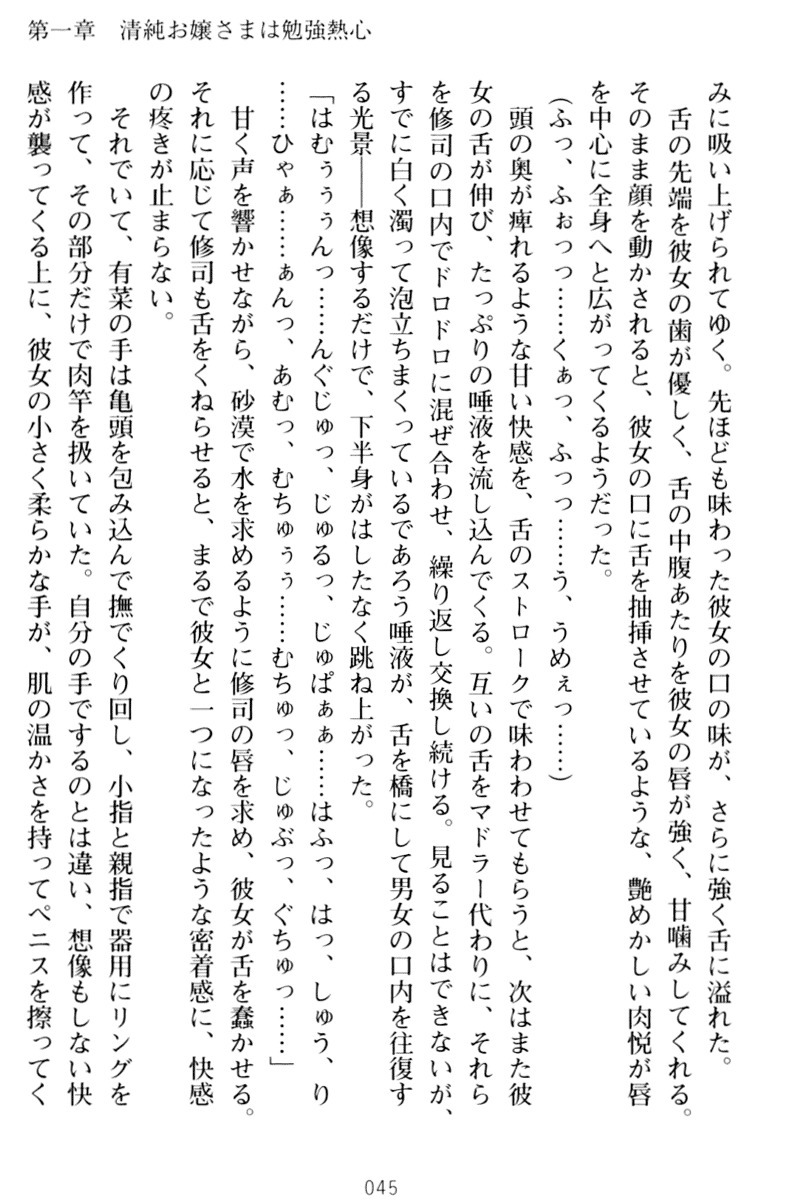 第一章　清純お嬢さまは勉強熱心
みに吸い上げられてゆく。先ほども味わった彼女の口の味が、さらに強く舌に溢れた。
舌の先端を彼女の歯が優しく、舌の中腹あたりを彼女の唇が強く、甘噛みしてくれる。
そのまま顔を動かされると、彼女の口に舌を抽挿させているような、艶めかしい肉悦が唇
を中心に全身へと広がってくるようだった。
（ふっ、ふぉっっ……くぁっ、ふっっ……う、うめぇっ……）
頭の奥が痺れるような甘い快感を、舌のストロークで味わわせてもらうと、次はまた彼
女の舌が伸び、たっぷりの唾液を流し込んでくる。互いの舌をマドラー代わりに、それら
を修司の口内でドロドロに混ぜ合わせ、繰り返し交換し続ける。見ることはできないが、
すでに白く濁って泡立ちまくっているであろう唾液が、舌を橋にして男女の口内を往復す
る光景――想像するだけで、下半身がはしたなく跳ね上がった。
「はむぅぅぅんっ……んぐじゅっ、じゅるっ、じゅぱぁぁ……はふっ、はっ、しゅう、り
……ひゃぁ……ぁんっ、あむっ、むちゅぅぅ……むちゅっ、じゅぶっ、ぐちゅっ……」
甘く声を響かせながら、砂漠で水を求めるように修司の唇を求め、彼女が舌を蠢かせる。
それに応じて修司も舌をくねらせると、まるで彼女と一つになったような密着感に、快感
の疼きが止まらない。
それでいて、有菜の手は亀頭を包み込んで撫でくり回し、小指と親指で器用にリングを
作って、その部分だけで肉竿を扱いていた。自分の手でするのとは違い、想像もしない快
感が襲ってくる上に、彼女の小さく柔らかな手が、肌の温かさを持ってペニスを擦ってく
045